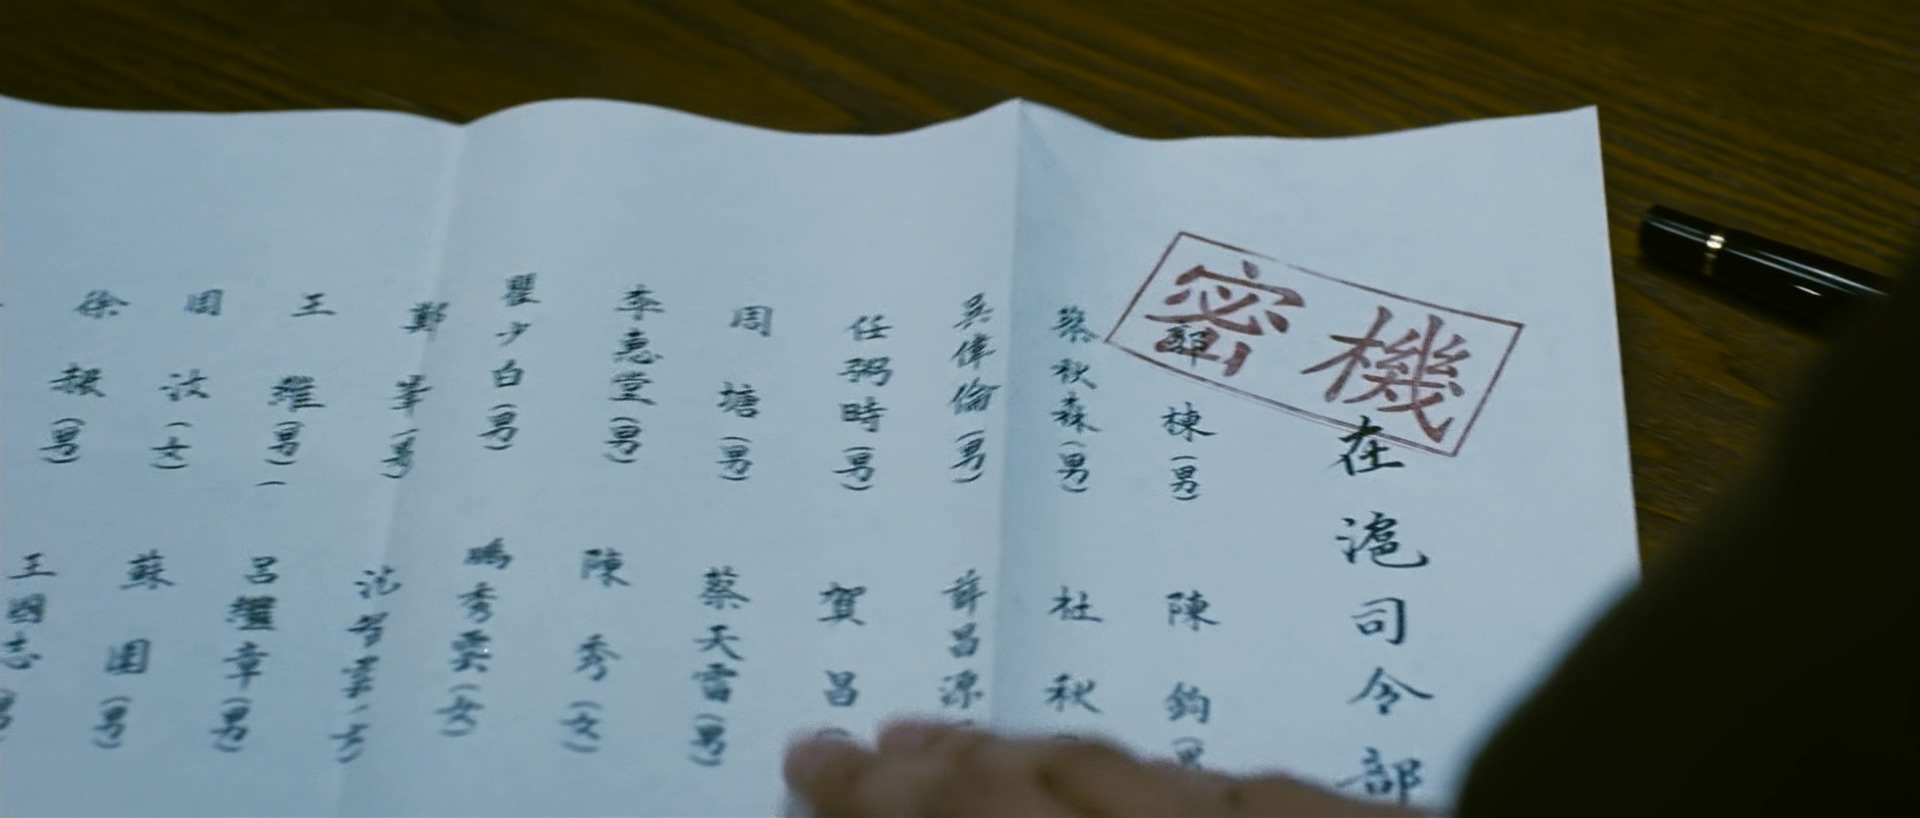 機密
在滬司令部
棟(男)
陳鈞(男
蔡秋森(男)
杜秋
吳偉倫(男)
薛昌源
任弼時(男)
賀昌
周塘(男)
蔡天雷(男)
李惠堂(男)
陳秀(女)
瞿少白(男)
秀雲(女)
鄭峯(男)
范智雲(女)
王維(男)
呂繼章(男)
周汝(女)
蘇國(男)
徐 (男)
王國志(男